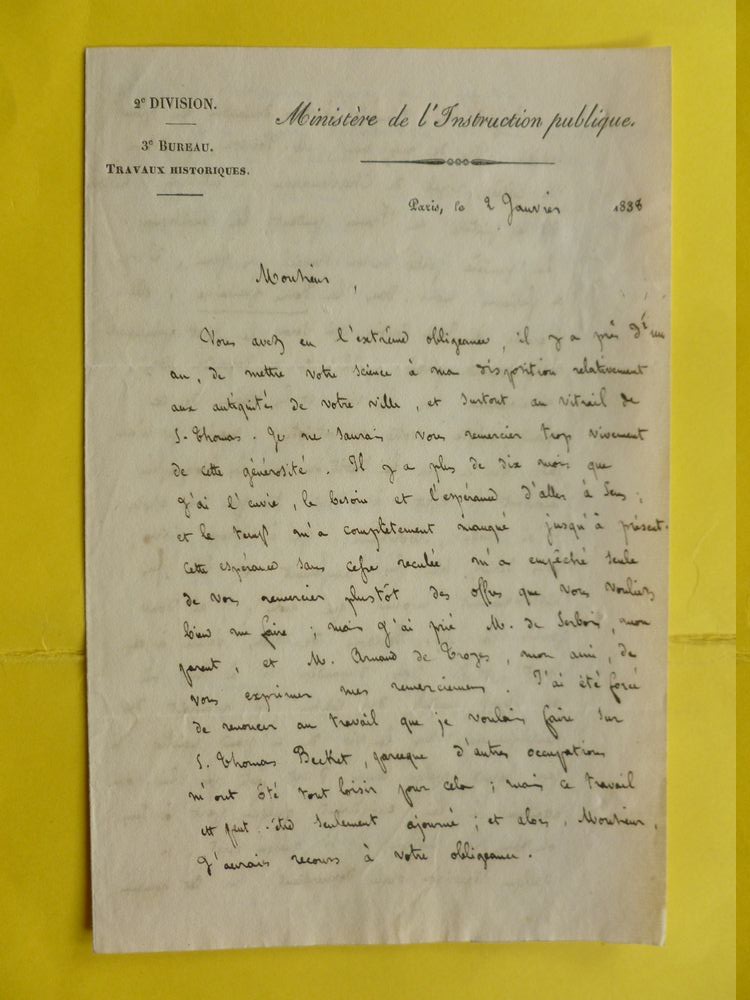 2e DIVISION.
3e BUREAU.
TRAVAUX HISTORIQUES.
Ministère de l'Instruction publique.
Paris, le 2 Janvier 1838
Monsieur,
Vous avez eu l'extrême obligeance, il y a près d'un
an, de mettre votre science à ma disposition relativement
aux antiquités de votre ville, et surtout au vitrail de
S. Thomas. Je ne saurais vous remercier trop vivement
de cette générosité. Il y a plus de dix mois que
j'ai l'envie, le besoin et l'espérance d'aller à Sens;
et le temps m'a complètement manqué jusqu'à présent.
Cette espérance sans cesse reculée m'a empêché seule
de vous remercier plustôt des offres que vous vouliez
bien me faire; mais j'ai prié M. de , mon
parent, et M. Arnaud de Troyes, mon ami, de
vous exprimer mes remerciemens. J'ai été forcé
de renoncer au travail que je voulais faire sur
S. Thomas Becket, parceque d'autres occupations
m'ont ôté tout loisir pour cela; mais ce travail
est peut-être seulement ajourné; et alors, Monsieur,
j'aurais recours à votre obligeance.